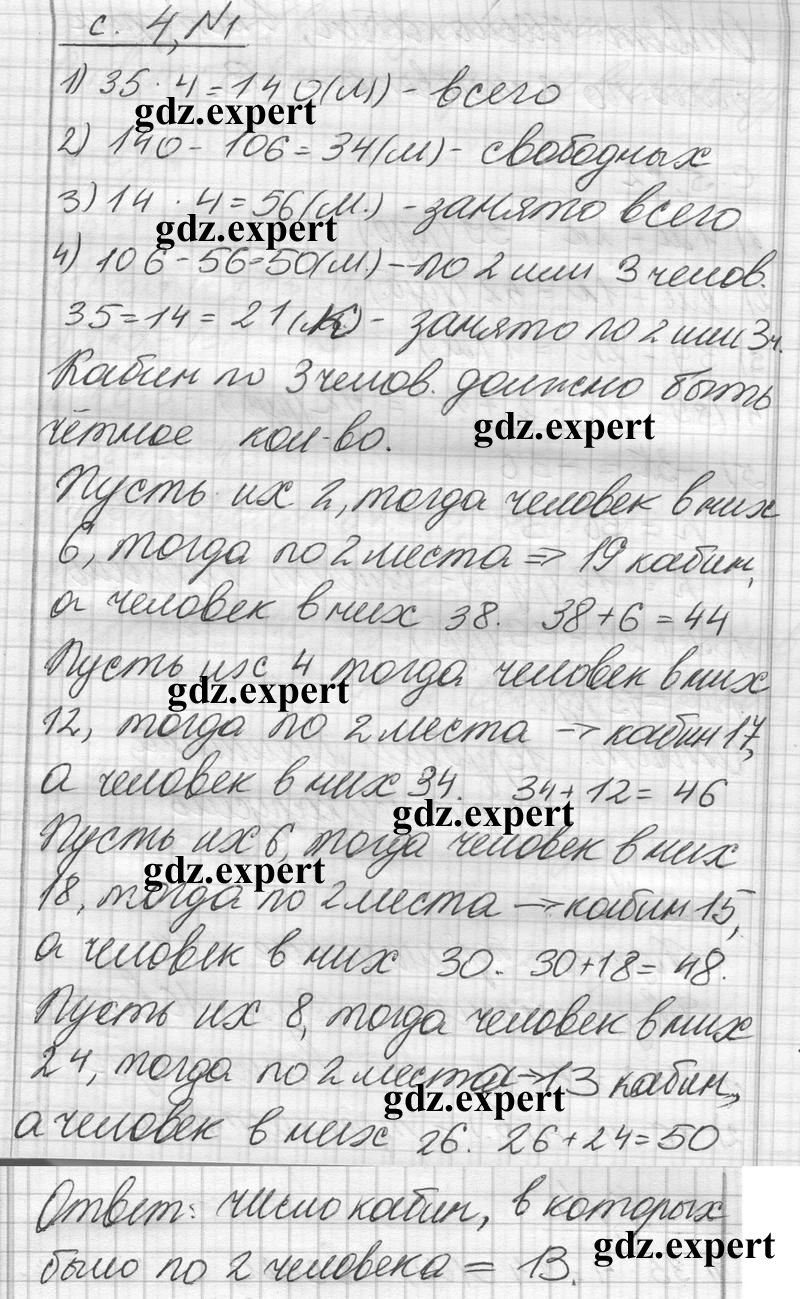 с. 4, №1
1) 35 · 4 = 140(м) - всего
gdz.expert
2) 140 - 106 = 34(м) - свободных
3) 14 · 4 = 56(м.) - занято всего
gdz.expert
4) 106 - 56 = 50(м) - по 2 или 3 челов.
35 = 14 = 21(к) - занято по 2 или 3 ч.
Кабин по 3 челов. должно быть
чётное кол-во.
gdz.expert
Пусть их 2, тогда человек в них
6, тогда по 2 места => 19 кабин,
а человек в них 38. 38 + 6 = 44
Пусть их 4 тогда человек в них
gdz.expert
12, тогда по 2 места -> кабин 17,
а человек в них 34. 34 + 12 = 46
gdz.expert
Пусть их 6, тогда человек в них
gdz.expert
18, тогда по 2 места -> кабин 15,
а человек в них 30. 30 + 18 = 48.
Пусть их 8, тогда человек в них
24, тогда по 2 места -> 13 кабин,
gdz.expert
а человек в них 26. 26 + 24 = 50
Ответ: число кабин, в которых
gdz.expert
было по 2 человека = 13.